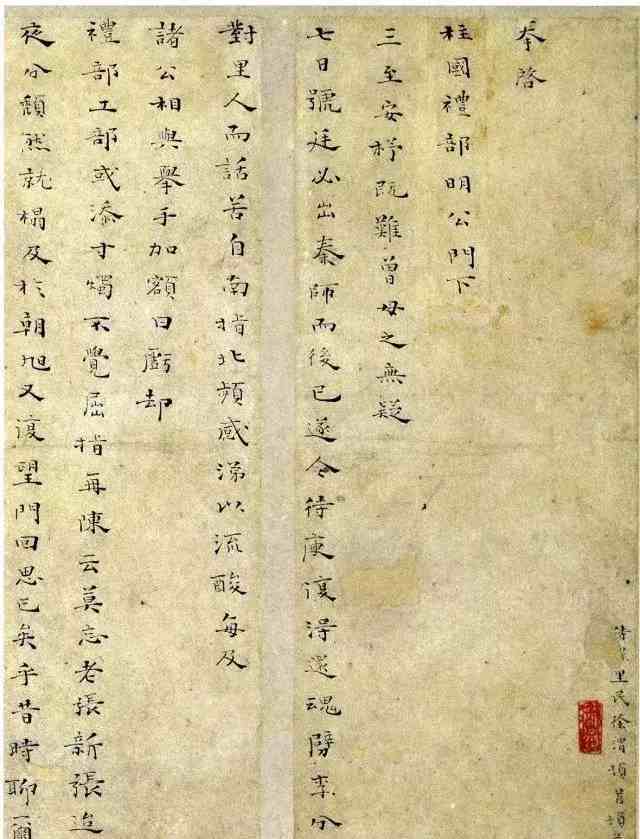 奉啓
柱國禮部明公門下
三至安梓既難曾母之無疑
七日號廷必出秦師而後已遂令待庚復得還魂
對里人而話苦自南指北頻感涕以流酸每及
諸公相與舉手加額曰虧却
禮部工部或添寸燭不覺屈指再陳云莫忘老張新張迨
夜分頹然就榻及於朝旭又復望門回思已矣乎昔時聊爾
里民徐渭頓首頓